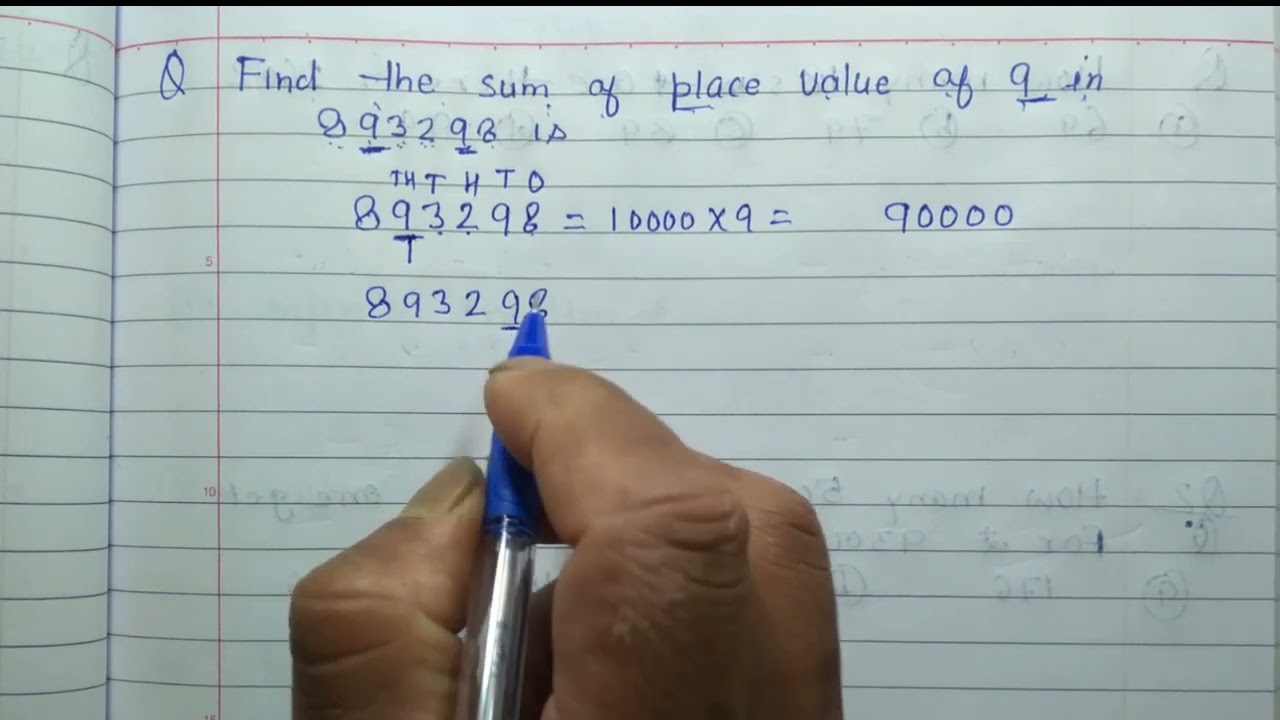 Q Find the sum of place value of 9 in
893298 is
TH T H T O
893298 = 10000 × 9 = 90000
T
5
893298
10
15